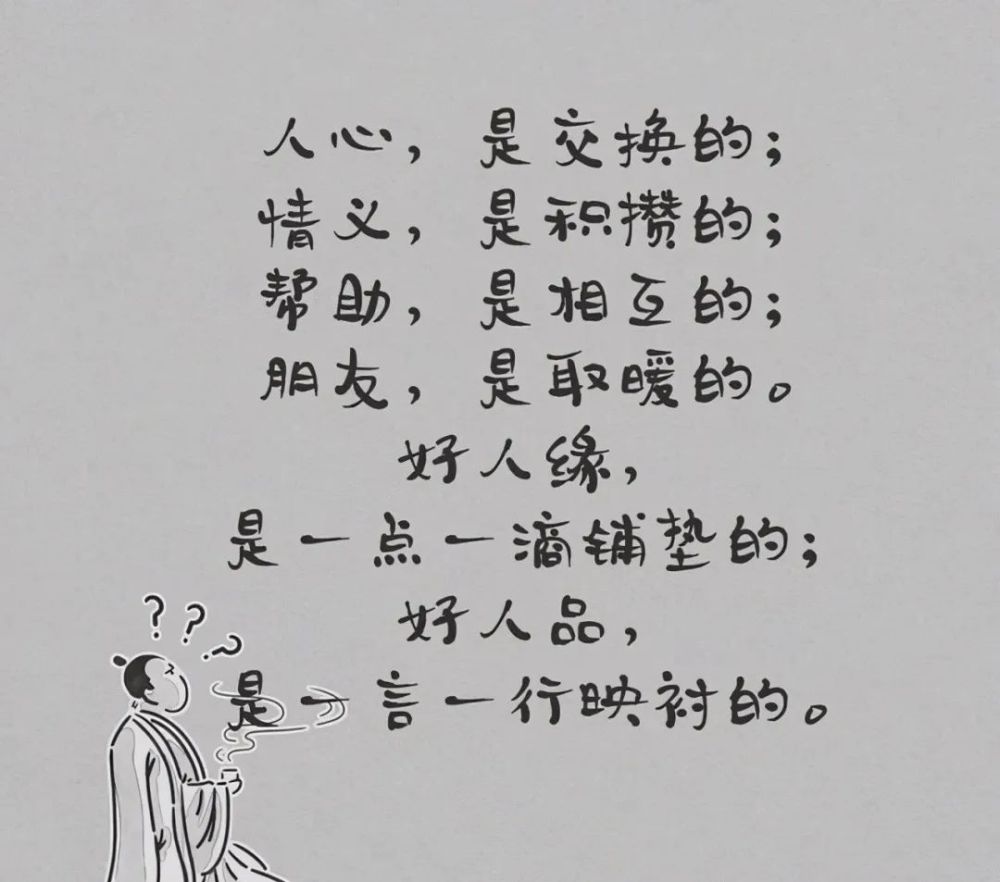 人心，是交换的；
情义，是积攒的；
帮助，是相互的；
朋友，是取暖的。
好人缘，
是一点一滴铺垫的；
好人品，
是一言一行映衬的。
???